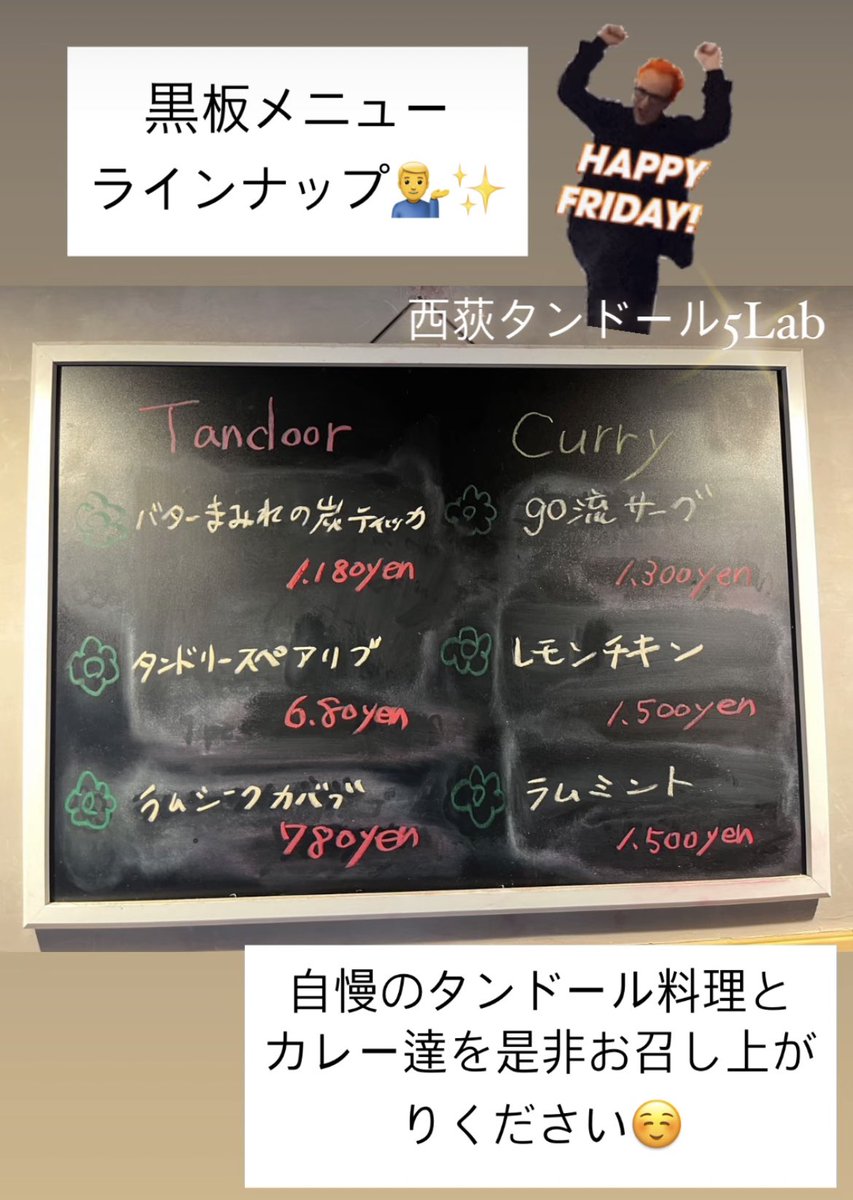 黒板メニュー
ラインナップ💁‍♂️✨
HAPPY
FRIDAY!
西荻タンドール5Lab
Tandoor
バターまみれの炭ティッカ
1.180yen
タンドリースペアリブ
6.80yen
ラムシークカバブ
780yen
Curry
go流サーグ
1.300yen
レモンチキン
1.500yen
ラムミント
1.500yen
自慢のタンドール料理と
カレー達を是非お召し上が
りください☺️